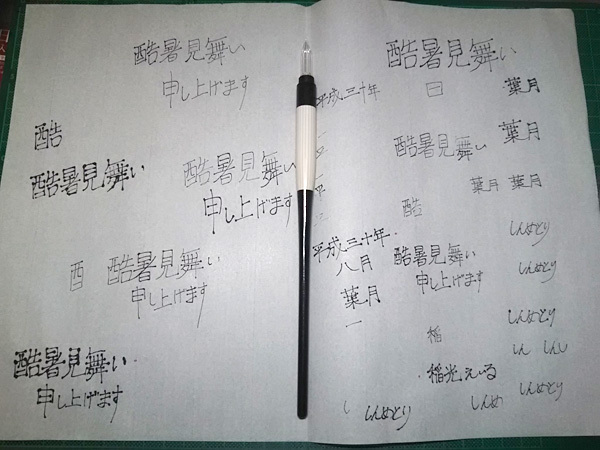 酷暑見舞い
申し上げます
酷
酷暑見舞い
酷暑見舞い
申し上げます
酉 酷暑見舞い
申し上げます
酷暑見舞い
申し上げます
酷暑見舞い
平成三十年 日 葉月
酷暑見舞い 葉月
葉月 葉月
酷
平成三十年
八月
葉月
一
酷暑見舞い
申し上げます
稲
稲光えいる
しんめとり
しんめとり
しんめとり
しん しんし
しんめとり
しんめ
し しんめとり